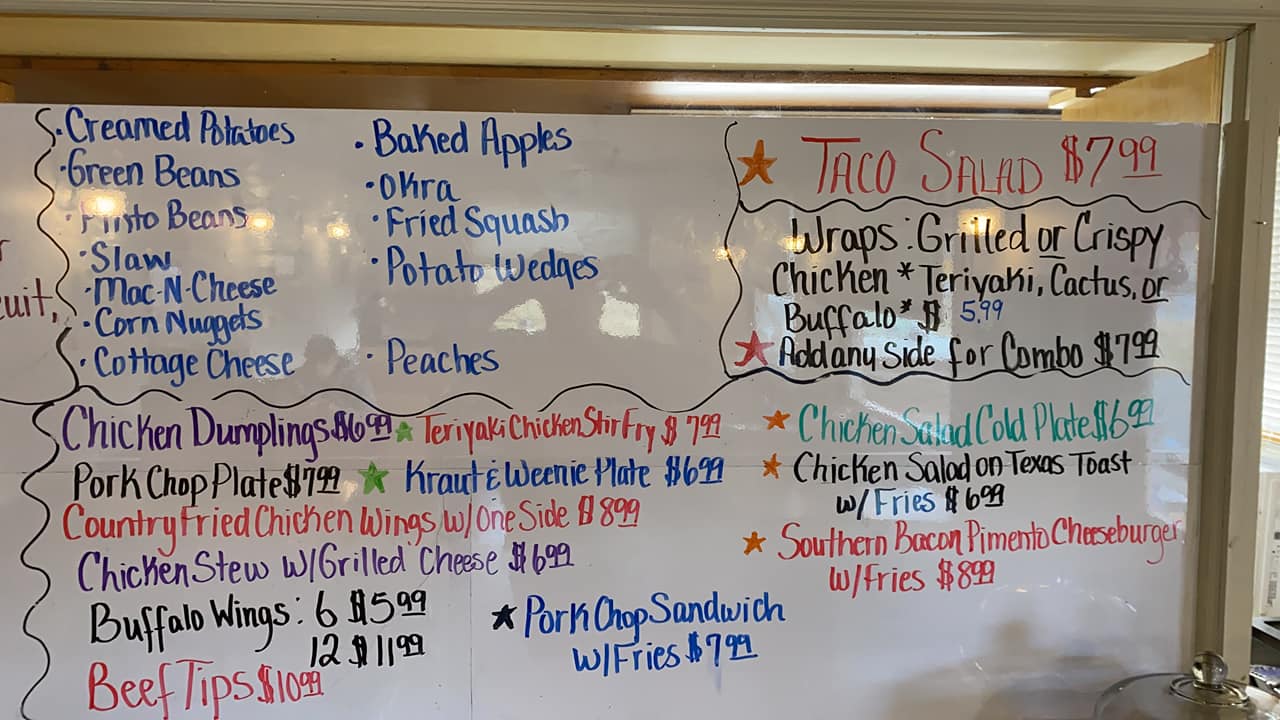 • Creamed Potatoes
• Green Beans
• Pinto Beans
• Slaw
• Mac-N-Cheese
• Corn Nuggets
• Cottage Cheese
• Baked Apples
• Okra
• Fried Squash
• Potato Wedges
• Peaches
uit,
Taco Salad $7.99
Wraps: Grilled or Crispy
Chicken * Teriyaki, Cactus, or
Buffalo * $ 5.99
Add any Side for Combo $7.99
Chicken Dumplings $6.99
Teriyaki Chicken Stir Fry $7.99
Pork Chop Plate $7.99
Kraut & Weenie Plate $6.99
Country Fried Chicken Wings w/ One Side $8.99
Chicken Stew w/ Grilled Cheese $6.99
Buffalo Wings: 6 $5.99
12 $11.99
Beef Tips $10.99
Pork Chop Sandwich
w/ Fries $7.99
Chicken Salad Cold Plate $6.99
Chicken Salad on Texas Toast
w/ Fries $6.99
Southern Bacon Pimento Cheeseburger
w/ Fries $8.99